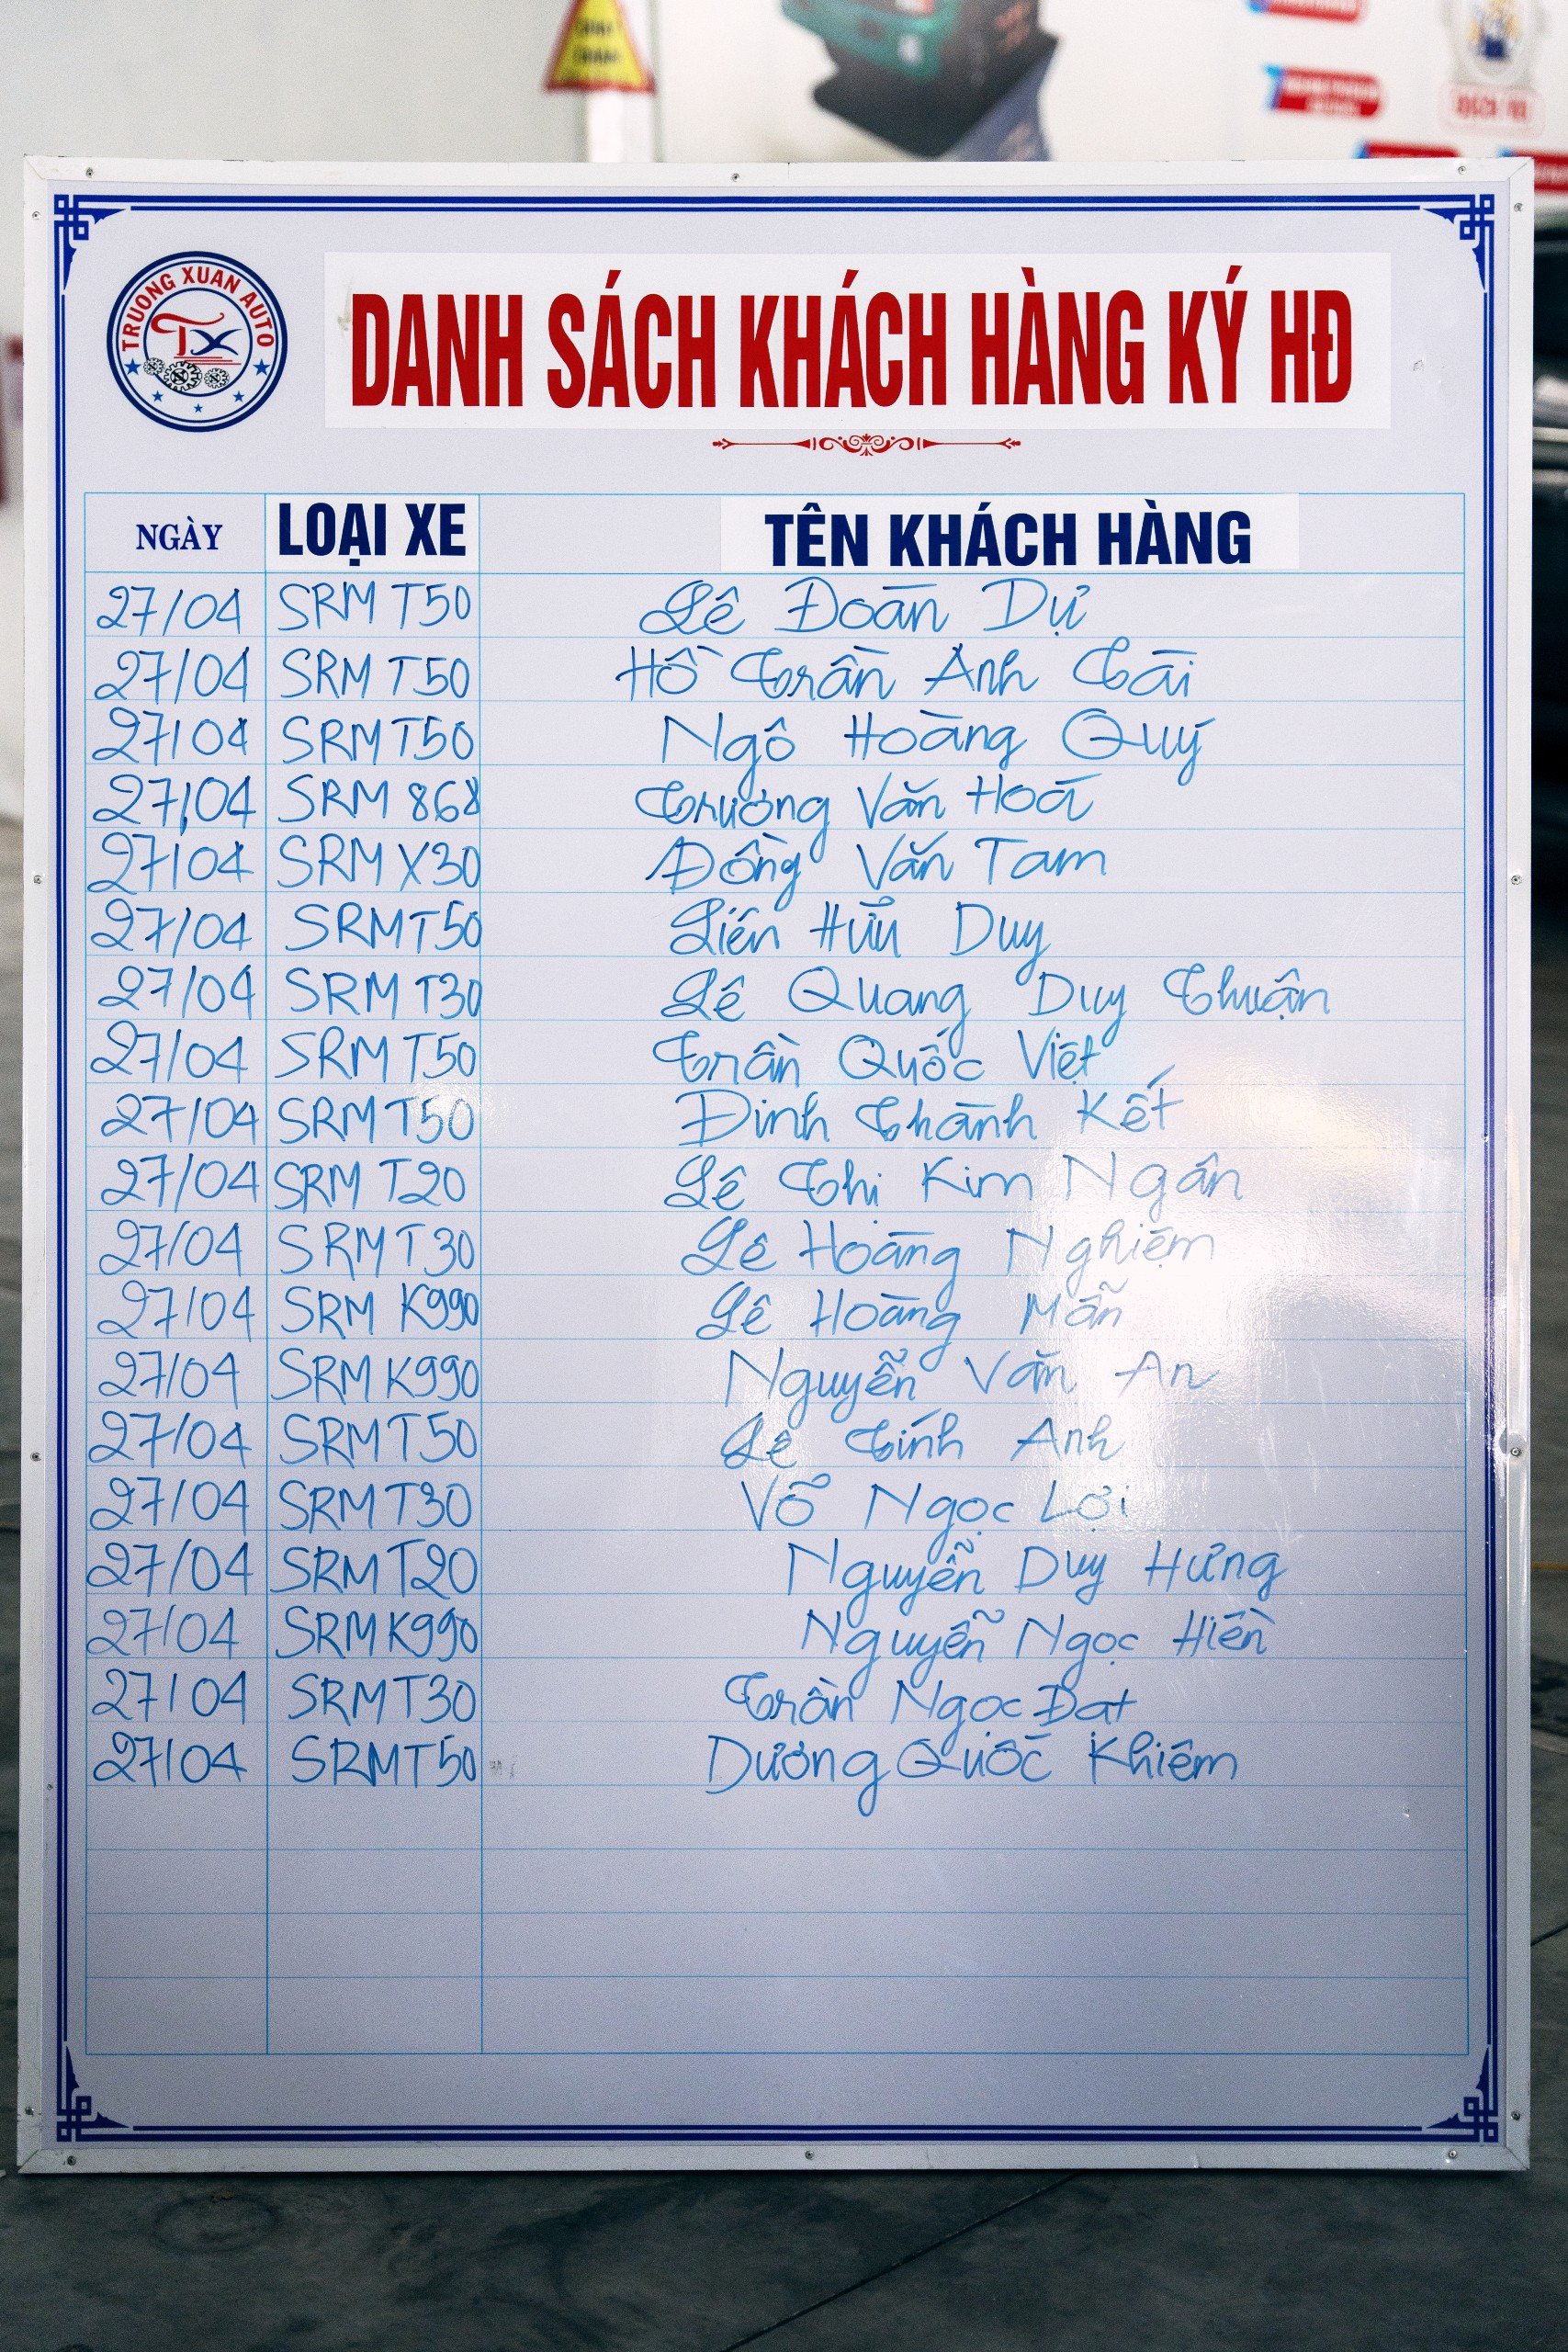 TRUONG XUAN AUTO
TX
DANH SÁCH KHÁCH HÀNG KÝ HĐ
NGÀY LOẠI XE TÊN KHÁCH HÀNG
27/04 SRM T50 Lê Đoàn Dự
27/04 SRM T50 Hồ Trần Anh Tài
27/04 SRM T50 Ngô Hoàng Quý
27/04 SRM 868 Trương Văn Hoá
27/04 SRM X30 Đồng Văn Tam
27/04 SRM T50 Liến Hữu Duy
27/04 SRM T30 Lê Quang Duy Thuận
27/04 SRM T50 Trần Quốc Việt
27/04 SRM T50 Đinh Thành Kết
27/04 SRM T20 Lê Thị Kim Ngân
27/04 SRM T30 Lê Hoàng Nghiệm
27/04 SRM K990 Lê Hoàng Mẫn
27/04 SRM K990 Nguyễn Văn An
27/04 SRM T50 Lê Tính Anh
27/04 SRM T30 Võ Ngọc Lợi
27/04 SRM T20 Nguyễn Duy Hưng
27/04 SRM K990 Nguyễn Ngọc Hiền
27/04 SRM T30 Trần Ngọc Đạt
27/04 SRM T50 Dương Quốc Khiêm